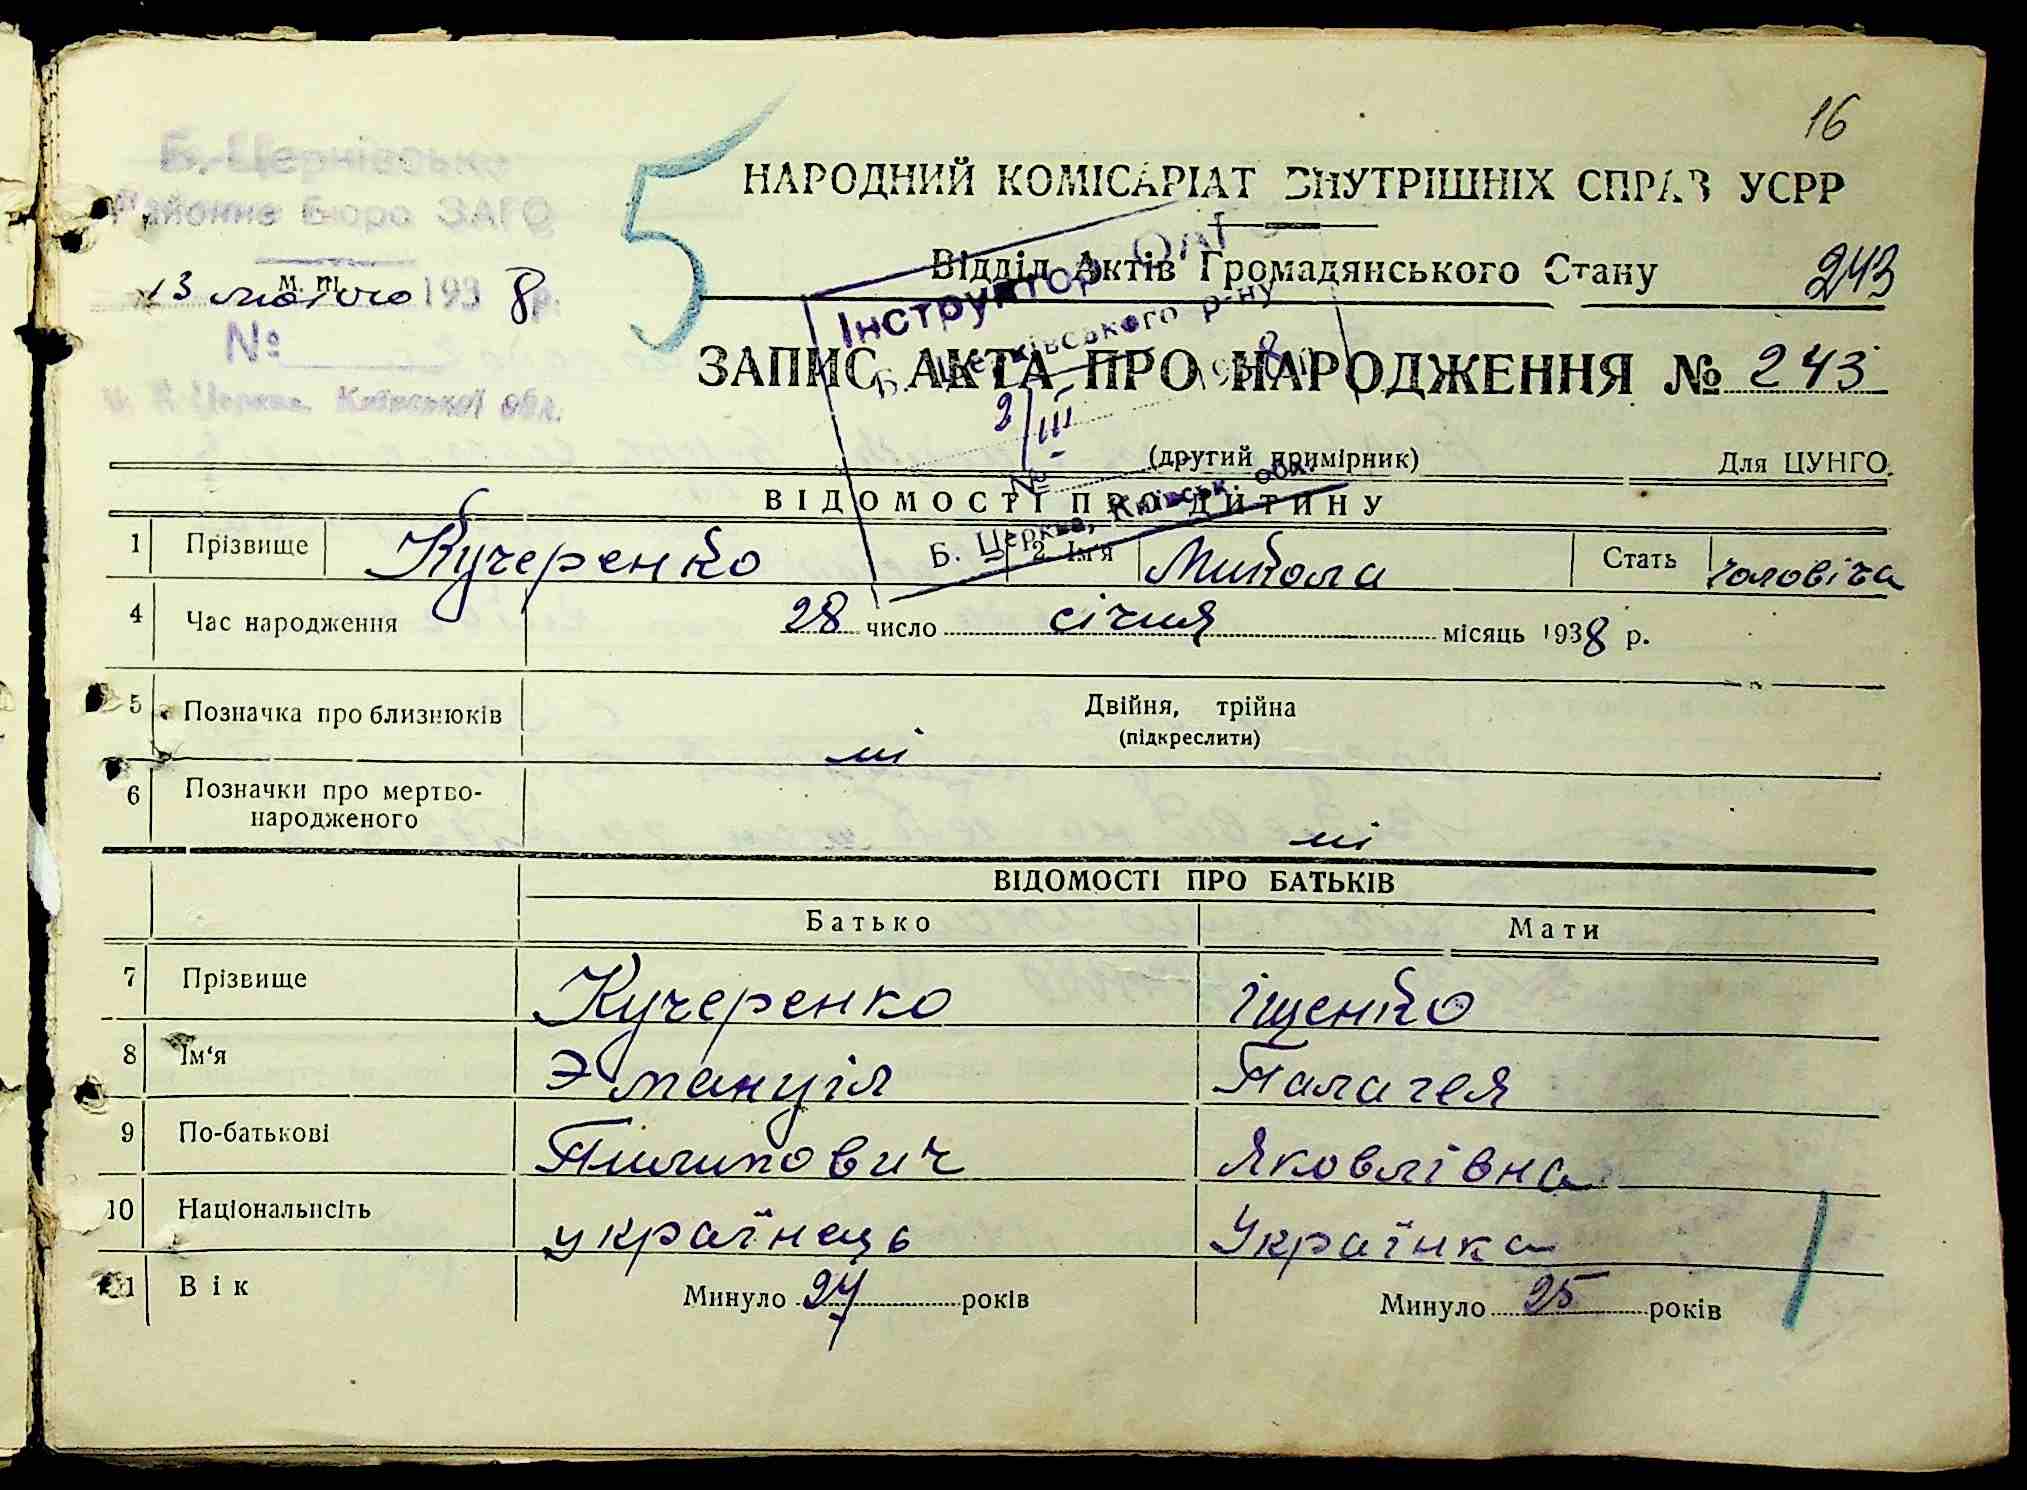 16
Б. Церківське
Районне Бюро ЗАГС
м. п.
13 лютого 1938 р.
№
м. Б. Церква, Київської обл.
5
НАРОДНИЙ КОМІСАРІАТ ВНУТРІШНІХ СПРАВ УСРР
Відділ Актів Громадянського Стану
243
Інструктор ОАГС
Б. Церківського р-ну
2/III 1938 р.
№
Б. Церква, Київськ. обл.
ЗАПИС АКТА ПРО НАРОДЖЕННЯ № 243
(другий примірник) Для ЦУНГО.
ВІДОМОСТІ ПРО ДИТИНУ
1 Прізвище Кучеренко 2 Ім'я Микола Стать чоловіча
4 Час народження 28 число січня місяць 1938 р.
5 Позначка про близнюків Двійня, трійна
(підкреслити)
ні
6 Позначки про мертво-
народженого ні
ВІДОМОСТІ ПРО БАТЬКІВ
Батько Мати
7 Прізвище Кучеренко Іщенко
8 Ім'я Эмануіл Палагея
9 По-батькові Пилипович Яковлівна
10 Національнсіть українець Українка
11 Вік Минуло 27 років Минуло 25 років